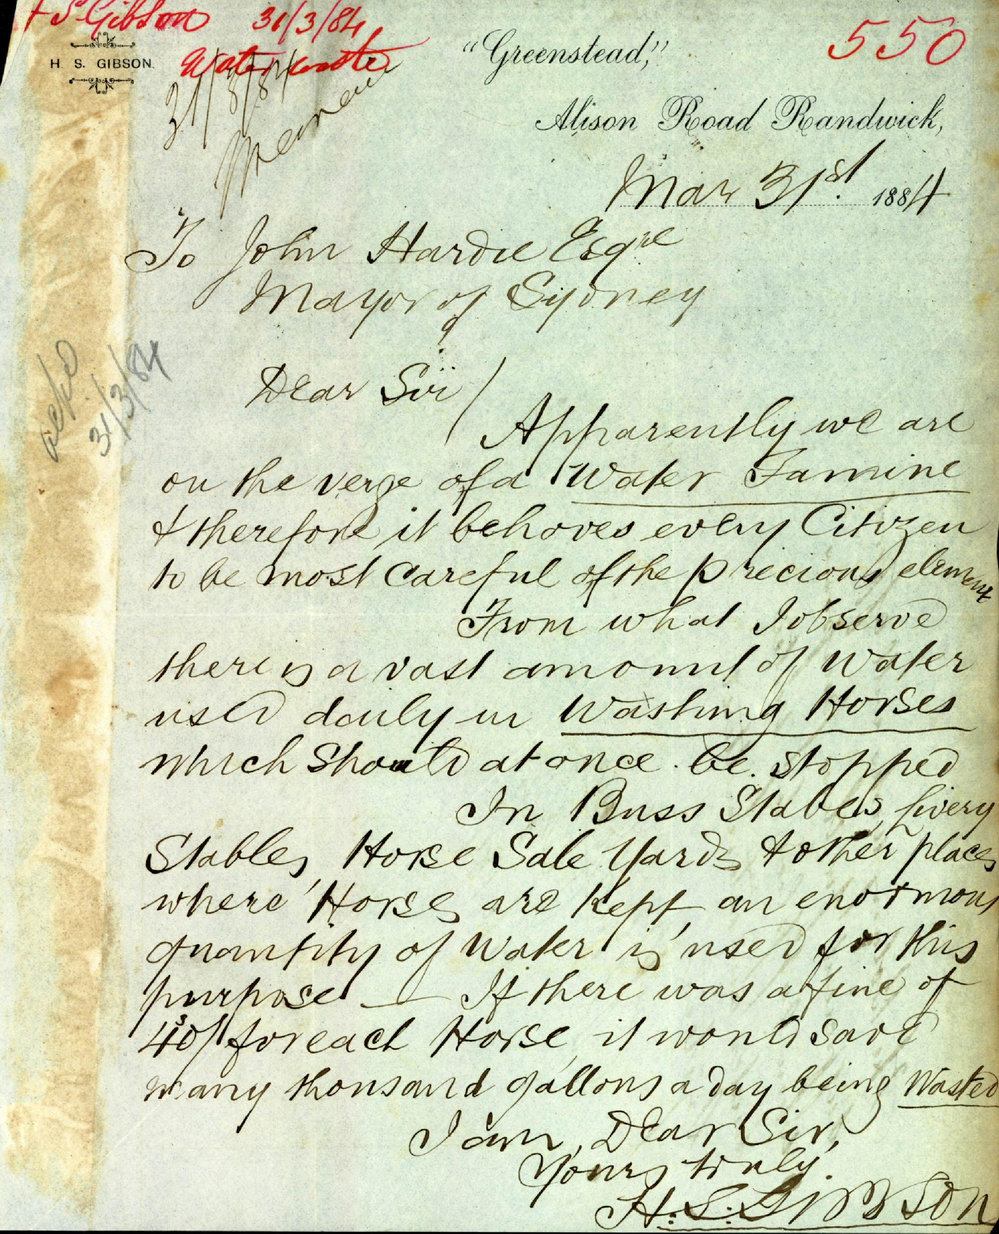 H S Gibson 31/3/84
Water waste
550
H. S. GIBSON.
"Greenstead,"
31/3/84
Alison Road Randwick,
Mar 31st. 1884
To John Hardie Esqre
Mayor of Sydney
ackd
31/3/84
Dear Sir/
Apparently we are
on the verge of a Water Famine
& therefore it behoves every Citizen
to be most careful of the precious element
From what I observe
there is a vast amount of Water
used daily in Washing Horses
which should at once be stopped
In Buss Stables, Livery
Stables, Horse Sale Yards & other places
where Horses are kept an enormous
quantity of Water is used for this
purpose — If there was a fine of
40s/ for each Horse, it would save
many thousand gallons a day being Wasted
I am, Dear Sir,
Yours truly.
H. S. Gibson